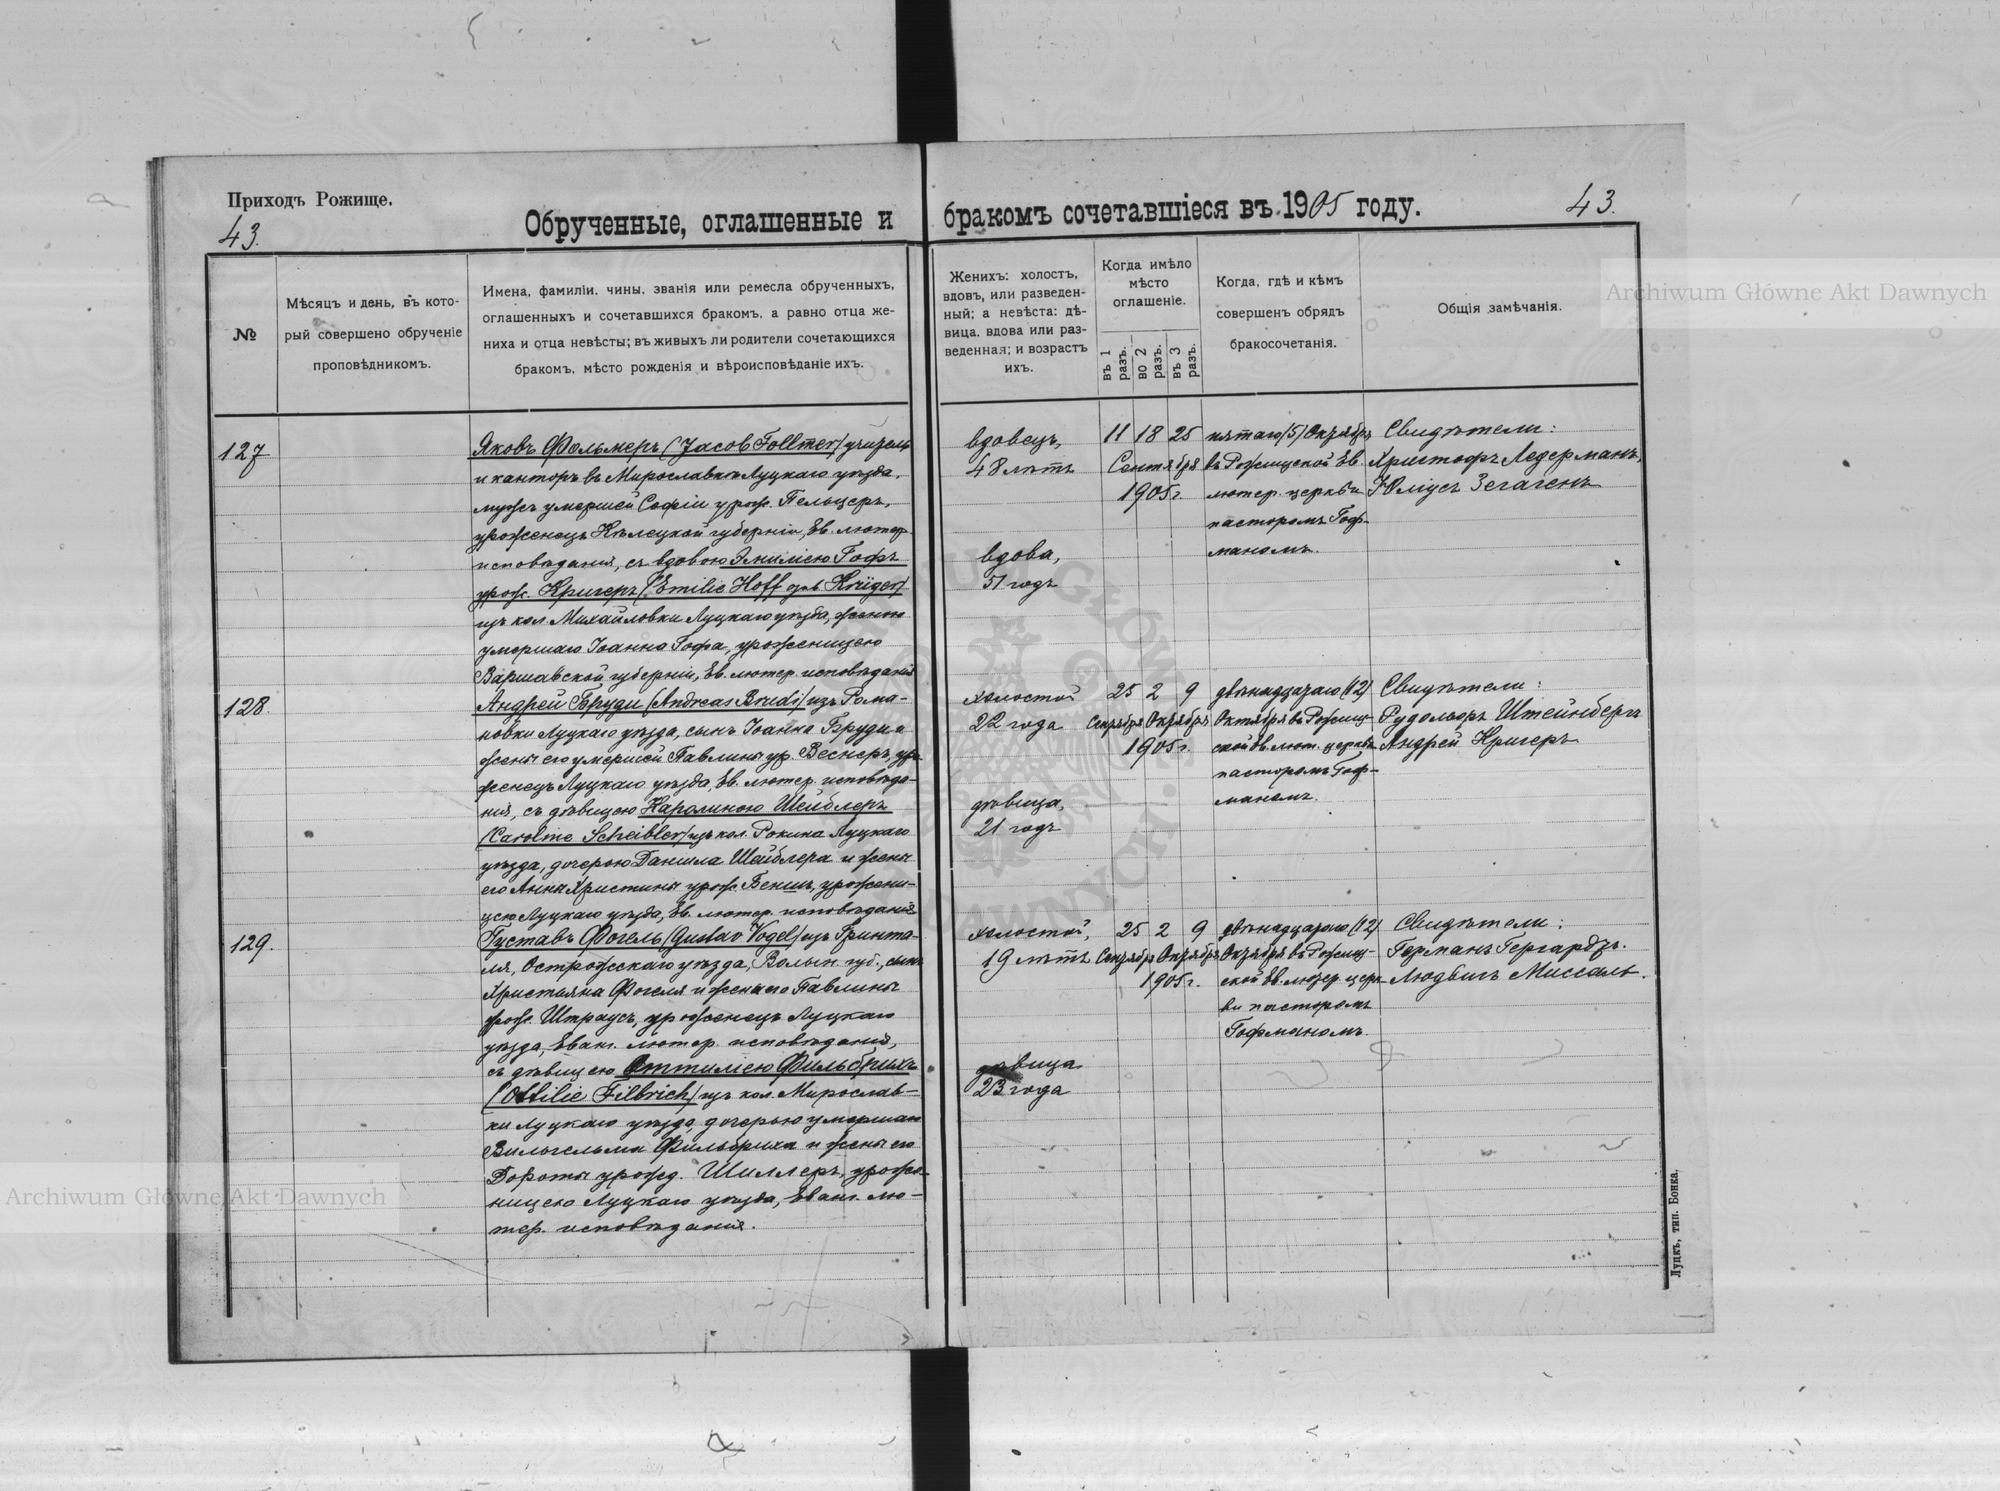 Приходъ Рожище.
43.
Обрученные, оглашенные и бракомъ сочетавшіеся въ 1905 году.
43.
№
Мѣсяцъ и день, въ кото-
рый совершено обрученіе
проповѣдникомъ.
Имена, фамиліи, чины, званія или ремесла обрученныхъ,
оглашенныхъ и сочетавшихся бракомъ, а равно отца же-
ниха и отца невѣсты; въ живыхъ ли родители сочетающихся
бракомъ, мѣсто рожденія и вѣроисповѣданіе ихъ.
Женихъ: холостъ,
вдовъ, или разведен-
ный; а невѣста: дѣ-
вица, вдова или раз-
веденная; и возрастъ
ихъ.
Когда имѣло
мѣсто
оглашеніе.
въ 1 разъ.
во 2 разъ.
въ 3 разъ.
Когда, гдѣ и кѣмъ
совершенъ обрядъ
бракосочетанія.
Общія замѣчанія.
127
Яковъ Фольмеръ (Jacob Follmer) учитель
и канторъ въ Мирославкѣ Луцкаго уѣзда,
мужъ умершей Софіи урож. Пельцеръ,
уроженецъ Кѣлецкой губерніи, Ев. лютер.
исповѣданія, съ вдовою Эмиліею Гофъ
урож. Кригеръ (Emilie Hoff geb. Krüger)
изъ кол. Михайловки Луцкаго уѣзда, женою
умершаго Іоанна Гофа, уроженицею
Варшавской губерніи, Ев. лютер. исповѣданія
вдовецъ,
48 лѣтъ
вдова,
51 годъ
11 18 25
Сентября
1905 г.
пятаго (5) Октября
въ Рожищской Ев.
лютер. церкви
пасторомъ Гоф-
маномъ.
Свидѣтели:
Христофъ Ледерманъ,
Юліусъ Зегагенъ
128.
Андрей Бруди (Andreas Brudi) изъ Рома-
новки Луцкаго уѣзда, сынъ Іоанна Бруди и
жены его умершей Павлины ур. Веснеръ, уро-
женецъ Луцкаго уѣзда, Ев. лютер. исповѣда-
нія, съ дѣвицею Каролиною Шейблеръ
(Caroline Scheibler) изъ кол. Рокина Луцкаго
уѣзда, дочерью Даніила Шейблера и жены
его Анны Христины урож. Бениш, урожени-
цею Луцкаго уѣзда, Ев. лютер. исповѣданія
холостой
22 года
дѣвица,
21 годъ
25 2 9
Сентября Октября
1905 г.
двѣнадцатаго (12)
Октября въ Рожищ-
ской Ев. лют. церкви
пасторомъ Гоф-
маномъ.
Свидѣтели:
Рудольфъ Штейнбергъ
Андрей Кригеръ
129.
Густавъ Фогель (Gustav Vogel) изъ Гринта-
ля, Острожскаго уѣзда, Волын. губ., сынъ
Христьяна Фогеля и жены его Павлины
урож. Штраусъ, уроженецъ Луцкаго
уѣзда, Еванг. лютер. исповѣданія,
съ дѣвицею Оттиліею Фильбрихъ
(Ottilie Filbrich) изъ кол. Мирослав-
ки Луцкаго уѣзда, дочерью умершаго
Вильгельма Фильбриха и жены его
Дороты урожд. Шиллеръ, уроже-
ницею Луцкаго уѣзда, Еванг. лю-
тер. исповѣданія.
холостой,
19 лѣтъ
дѣвица
23 года
25 2 9
Сентября Октября
1905 г.
двѣнадцатаго (12)
Октября въ Рожищ-
ской Ев. лютер. церк-
ви пасторомъ
Гофманомъ.
Свидѣтели:
Германъ Гергардтъ.
Людвигъ Миссаль.
Луцкъ, тип. Бонка.
Archiwum Główne Akt Dawnych
Archiwum Główne Akt Dawnych